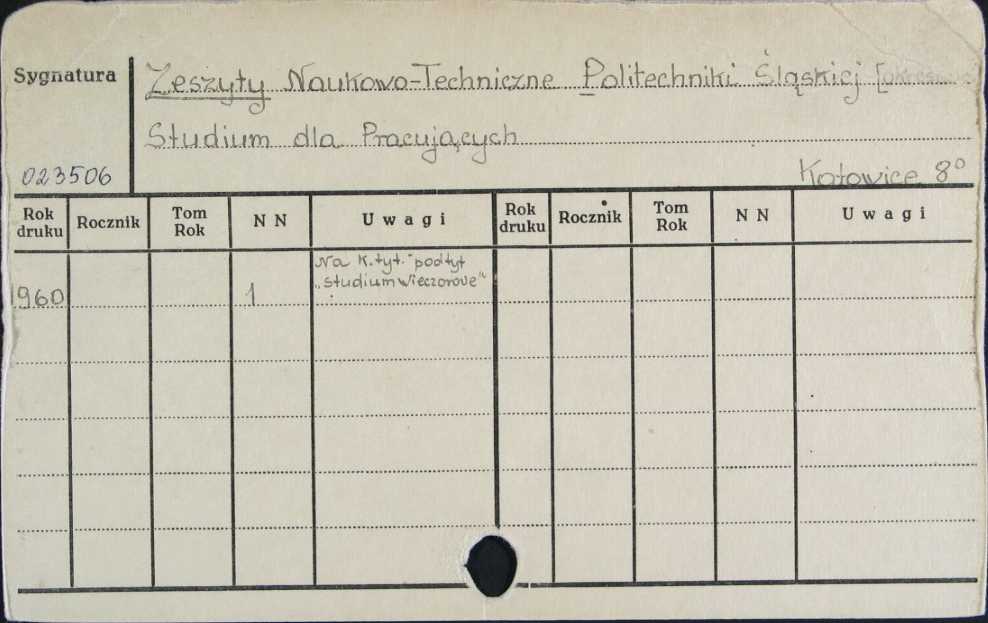 Sygnatura
Zeszyty Naukowo-Techniczne Politechniki Śląskiej [
Studium dla Pracujących
023506
Katowice 8°
Rok druku Rocznik Tom Rok N N Uwagi Rok druku Rocznik Tom Rok N N Uwagi
Na k. tyt. podtyt
„Studium Wieczorowe"
1960 1